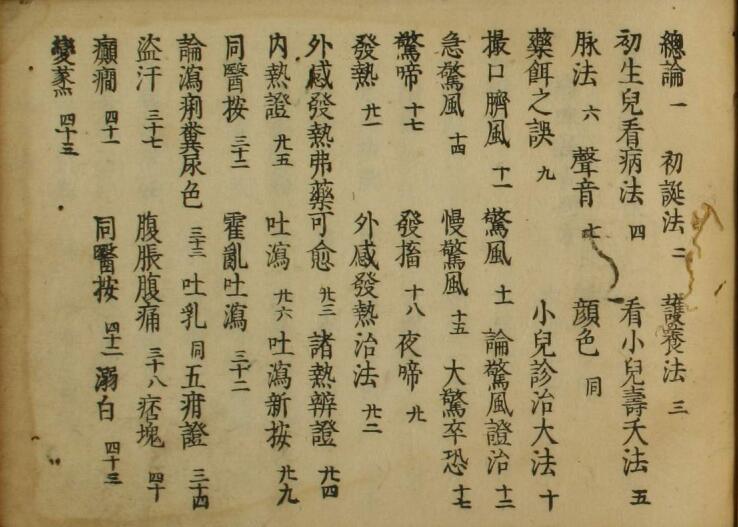 總論 一 初誕法 二 護養法 三
初生兒看病法 四 看小兒壽夭法 五
脉法 六 聲音 七 顔色 同
藥餌之誤 九 小兒診治大法 十
撮口臍風 十一 驚風 十一 論驚風證治 十二
急驚風 十四 慢驚風 十五 大驚卒恐 十七
驚啼 十七 發搐 十八 夜啼 十九
發熱 廿一 外感發熱治法 廿二
外感發熱弗藥可愈 廿三 諸熱辨證 廿四
内熱證 廿五 吐瀉 廿六 吐瀉新按 廿九
同醫按 三十二 霍亂吐瀉 三十二
論瀉痢糞尿色 三十三 吐乳 同 五疳證 三十四
盜汗 三十七 腹脹腹痛 三十八 痞塊 四十
癲癇 四十一 同醫按 四十二 溺白 四十三
變蒸 四十三